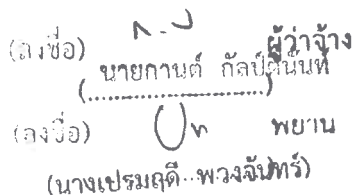 (ลงชื่อ) ผู้ว่าจ้าง
นายกานต์ กัลป์ตินันท์
(..............................)
(ลงชื่อ) พยาน
(นางเปรมฤดี..พวงจันทร์)